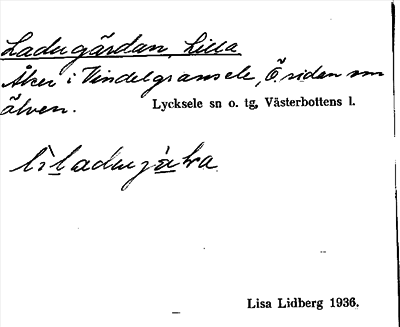 Ladugårdan, Lilla
Åker i Vindelgransele, Ö. sidan om
älven.
Lycksele sn o. tg, Västerbottens l.
Lisa Lidberg 1936.